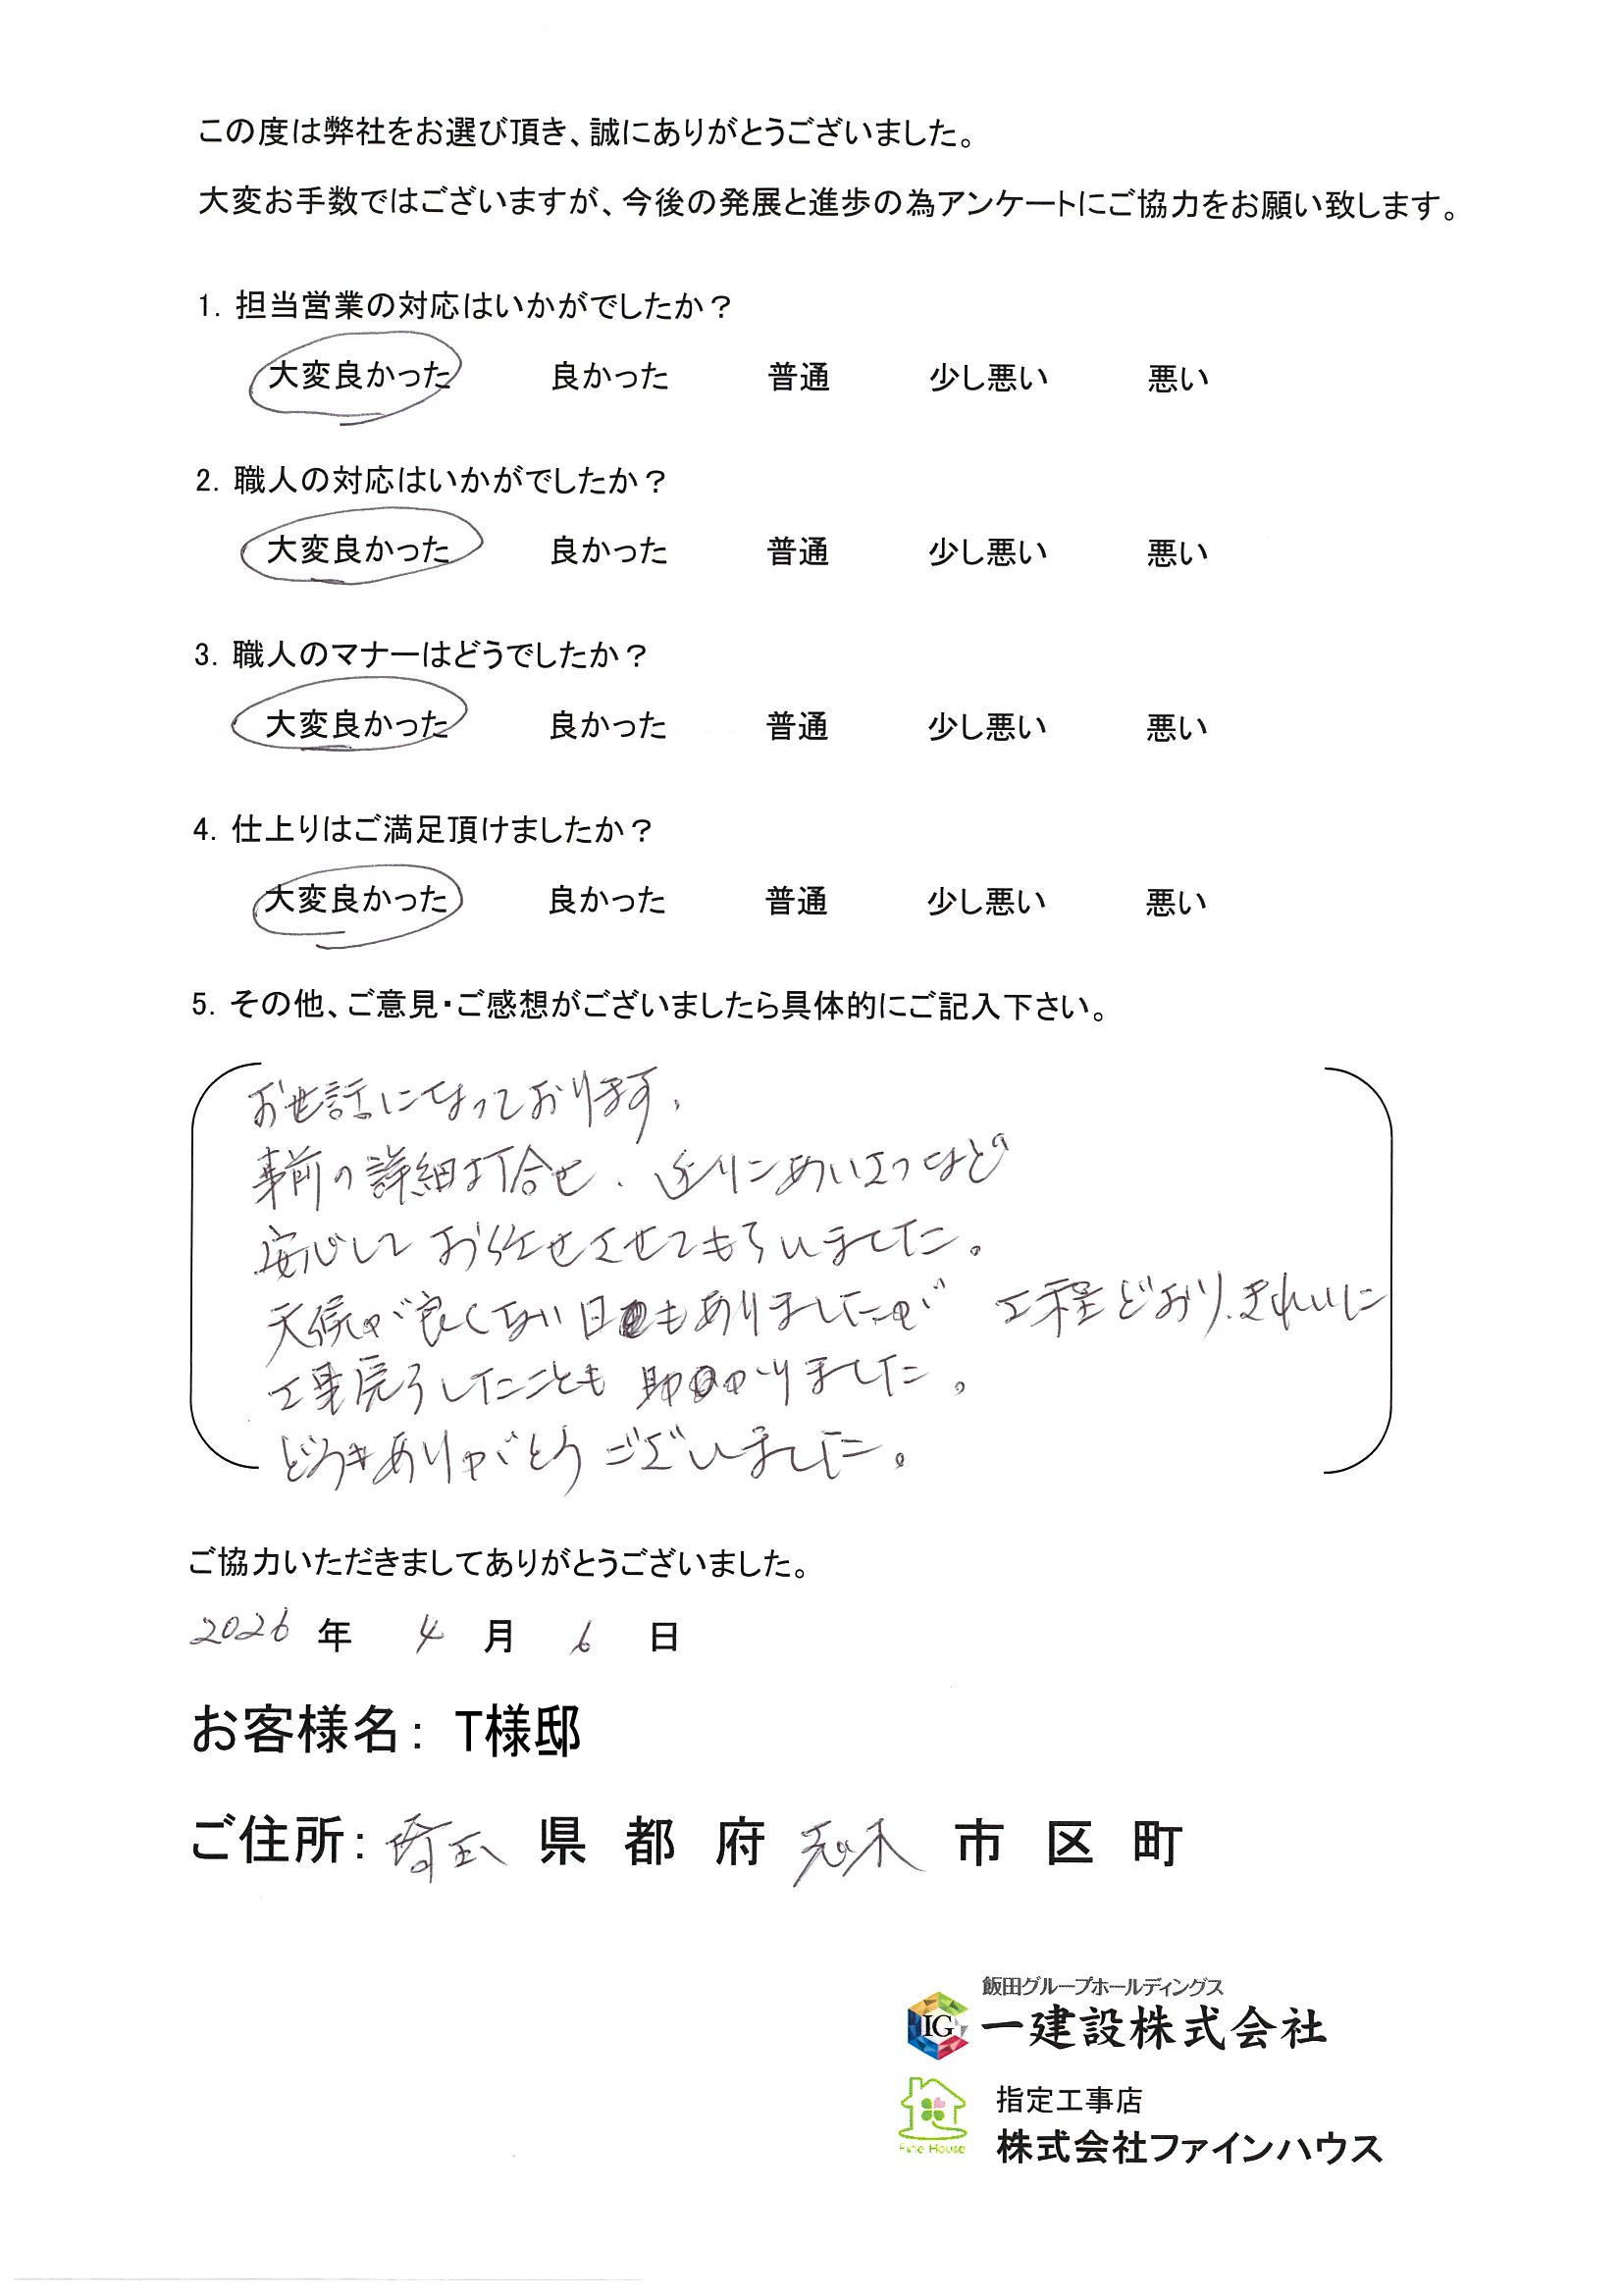 この度は弊社をお選び頂き、誠にありがとうございました。
大変お手数ではございますが、今後の発展と進歩の為アンケートにご協力をお願い致します。
1. 担当営業の対応はいかがでしたか？
大変良かった 良かった 普通 少し悪い 悪い
2. 職人の対応はいかがでしたか？
大変良かった 良かった 普通 少し悪い 悪い
3. 職人のマナーはどうでしたか？
大変良かった 良かった 普通 少し悪い 悪い
4. 仕上りはご満足頂けましたか？
大変良かった 良かった 普通 少し悪い 悪い
5. その他、ご意見・ご感想がございましたら具体的にご記入下さい。
お世話になっております。
事前の詳細打合せ、近りんあいさつなど
安心して お任せさせてもらいました。
天候が良くない日もありましたが 工程どおり、きれいに
工事完了したことも 助かりました。
どうもありがとう ございました。
ご協力いただきましてありがとうございました。
2026 年 4 月 6 日
お客様名： T様邸
ご住所：埼玉 県 都 府 志木 市 区 町
飯田グループホールディングス
IG 一建設株式会社
指定工事店
Fine House 株式会社ファインハウス